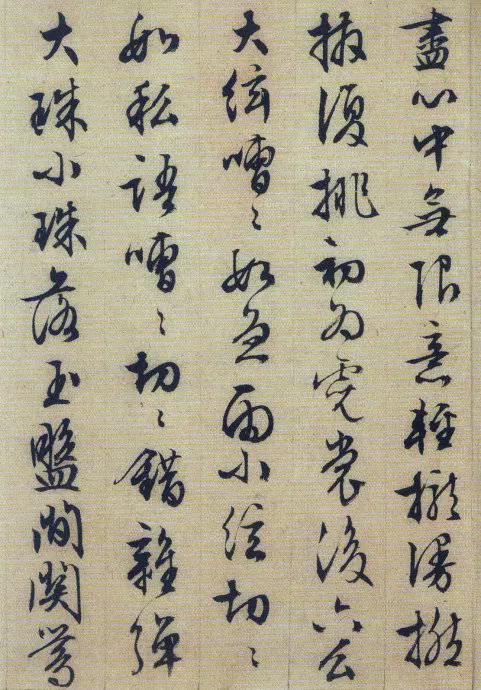 盡心中無限意輕攏慢撚
抹復挑初為霓裳後六幺
大絃嘈〻如急雨小絃切〻
如私語嘈〻切〻錯雜彈
大珠小珠落玉盤間関鶯